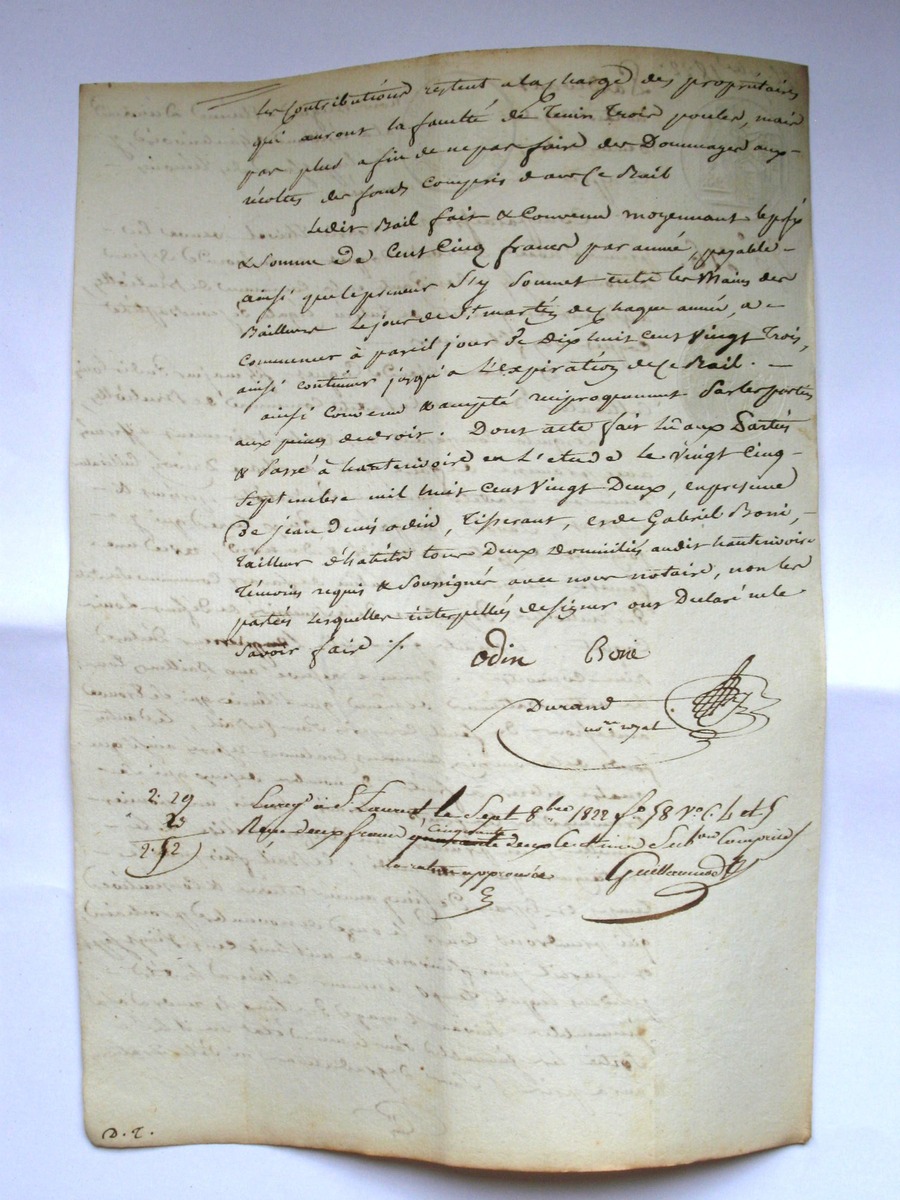 Les Contributions restent a la charge des propriétaires
qui auront la faculté de Tenir Trois poules, mais
pas plus afin de ne pas faire des Dommages aux
récoltes des fonds compris dans Ce Bail
Ledit Bail fait & Convenu moyennant le prix
& Somme De Cent Cinq francs par année, payable
ainsi que le preneur S'y Soumet entre les Mains des
Bailleurs Le jour de St martin de Chaque année, a
Commencer à pareil jour De Dix huit cent Vingt Trois,
ainsi continuer jusqu'a L'expiration de Ce Bail.
ainsi Convenu & accepté reciproquement Par les parties
aux peines de droit. Dont acte fait Lû aux Parties
& Passé à hauterivoire en L'etude le vingt Cinq
Septembre mil huit Cent Vingt Deux, en présence
De jean Denis odin, Tisserant, et de Gabriel Boni,
Tailleur d'habits tous Deux Domiciliés audit hauterivoire
Témoins requis & Soussignés avec nous notaire, non les
parties Lesquelles interpellées de signer ont Declaré ne le
Savoir faire ./.
odin Bonie
Durand
nore royal
2: 29
23
2:52
Enreg. à St. Laurent, le Sept 8bre 1822 fo 58 Vo C. 4 et 5
Reçu deux francs Cinquante deux centimes Subon Comprise
la rature approuvée Guillermod
D. T.